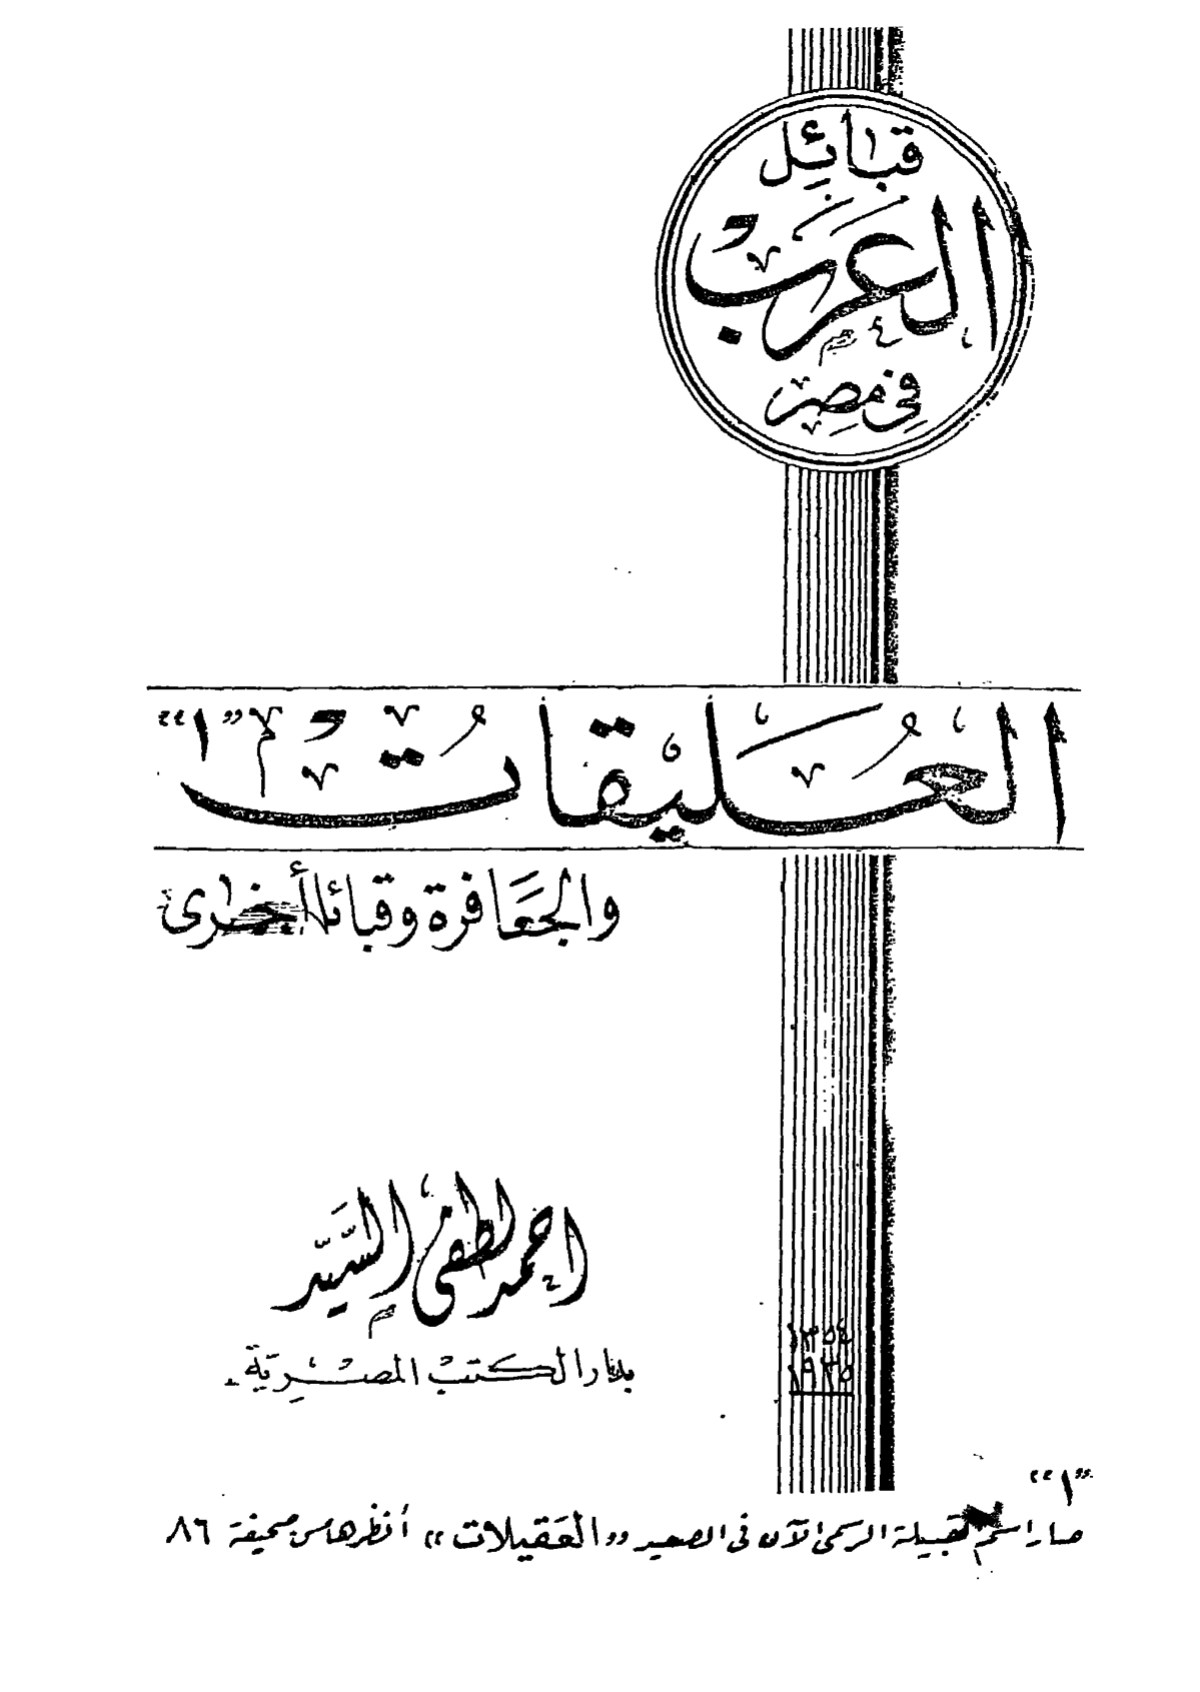 قبائل
العرب
في مصر
العُليقاتُ "١"
والجعَافرة وقبائل أخرى
احمد لطفى السَّيِّد
بدار الكتب المصرية
١٣٥٤
١٩٣٥
"١"
صار اسم القبيلة الرسمى الآن فى الصعيد "العقيلات" أنظر هامش صحيفة ٨٦